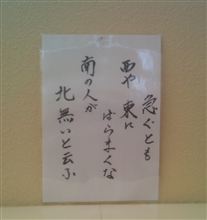 急ぐとも
西や東に
はらまくな
南の人が
北無いと云ふ